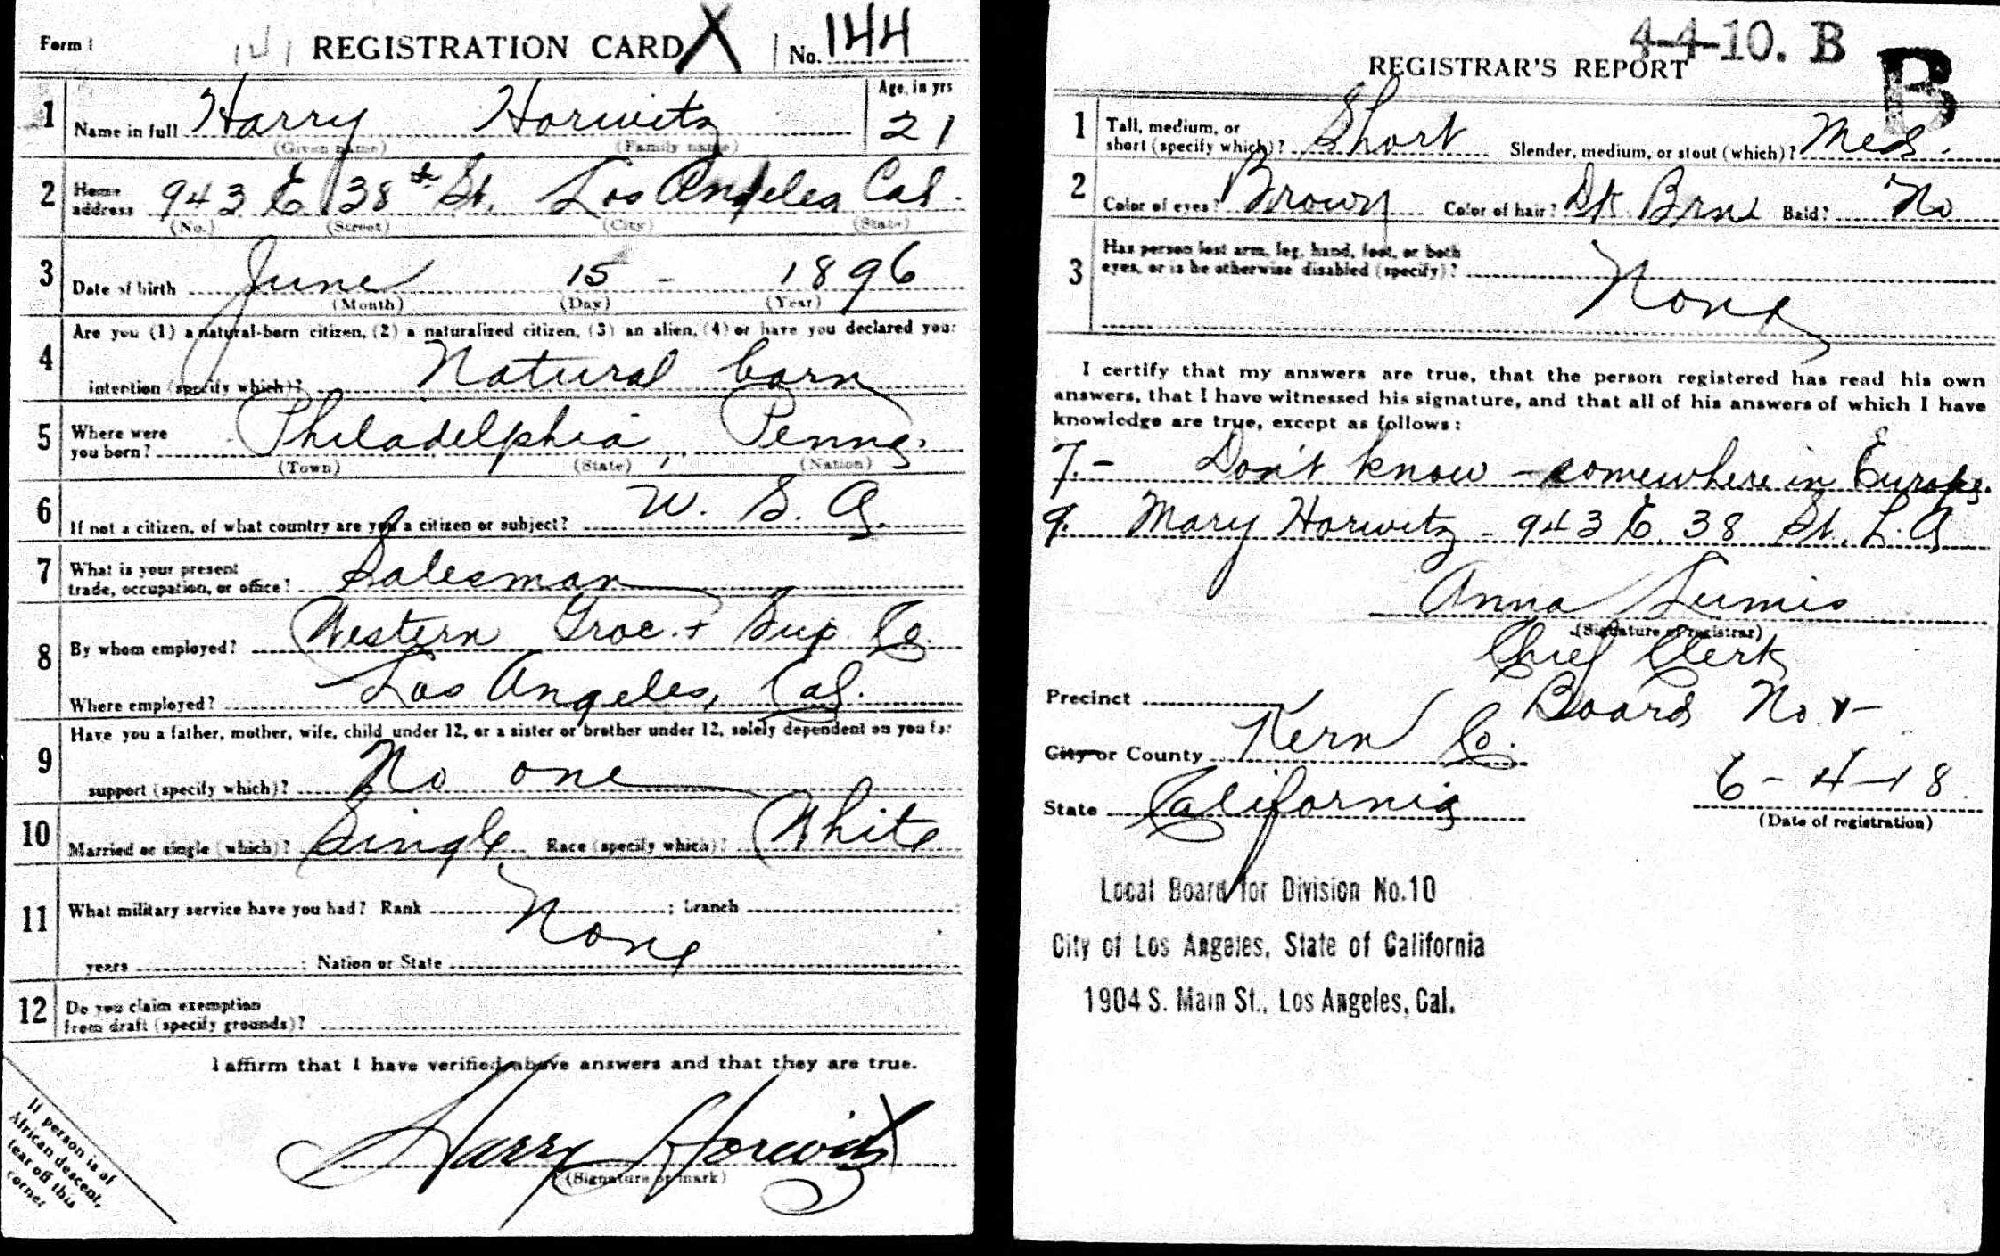 Form 1 141 REGISTRATION CARD X No. 144
1 Name in full Harry Horwitz Age, in yrs 21
(Given name) (Family name)
2 Home address 943 E 38th St. Los Angeles Cal.
(No.) (Street) (City) (State)
3 Date of birth June 15 - 1896
(Month) (Day) (Year)
4 Are you (1) a natural-born citizen, (2) a naturalized citizen, (3) an alien, (4) or have you declared your
intention (specify which)? Natural born
5 Where were you born? Philadelphia, Penna.
(Town) (State) (Nation)
6 If not a citizen, of what country are you a citizen or subject? U. S. A.
7 What is your present trade, occupation, or office? Salesman
8 By whom employed? Western Groc. + Sup. Co.
Where employed? Los Angeles, Cal.
9 Have you a father, mother, wife, child under 12, or a sister or brother under 12, solely dependent on you for
support (specify which)? No one
10 Married or single (which)? Single Race (specify which)? White
11 What military service have you had? Rank None ; branch
years ; Nation or State
12 Do you claim exemption
from draft (specify grounds)?
I affirm that I have verified above answers and that they are true.
Harry Horwitz
(Signature or mark)
If person is of
African descent,
tear off this
corner
4-4-10. B
REGISTRAR'S REPORT B
1 Tall, medium, or short (specify which)? Short Slender, medium, or stout (which)? Med.
2 Color of eyes? Brown Color of hair? Dk Brn Bald? No
3 Has person lost arm, leg, hand, foot, or both
eyes, or is he otherwise disabled (specify)?
None
I certify that my answers are true, that the person registered has read his own
answers, that I have witnessed his signature, and that all of his answers of which I have
knowledge are true, except as follows:
7. - Don't know - somewhere in Europe.
9. Mary Horwitz - 943 E. 38 St. L. A
Anna
(Signature of registrar)
Chief Clerk
Precinct Board No
City or County Kern Co.
6-4-18
State California
(Date of registration)
Local Board for Division No. 10
City of Los Angeles, State of California
1904 S. Main St., Los Angeles, Cal.